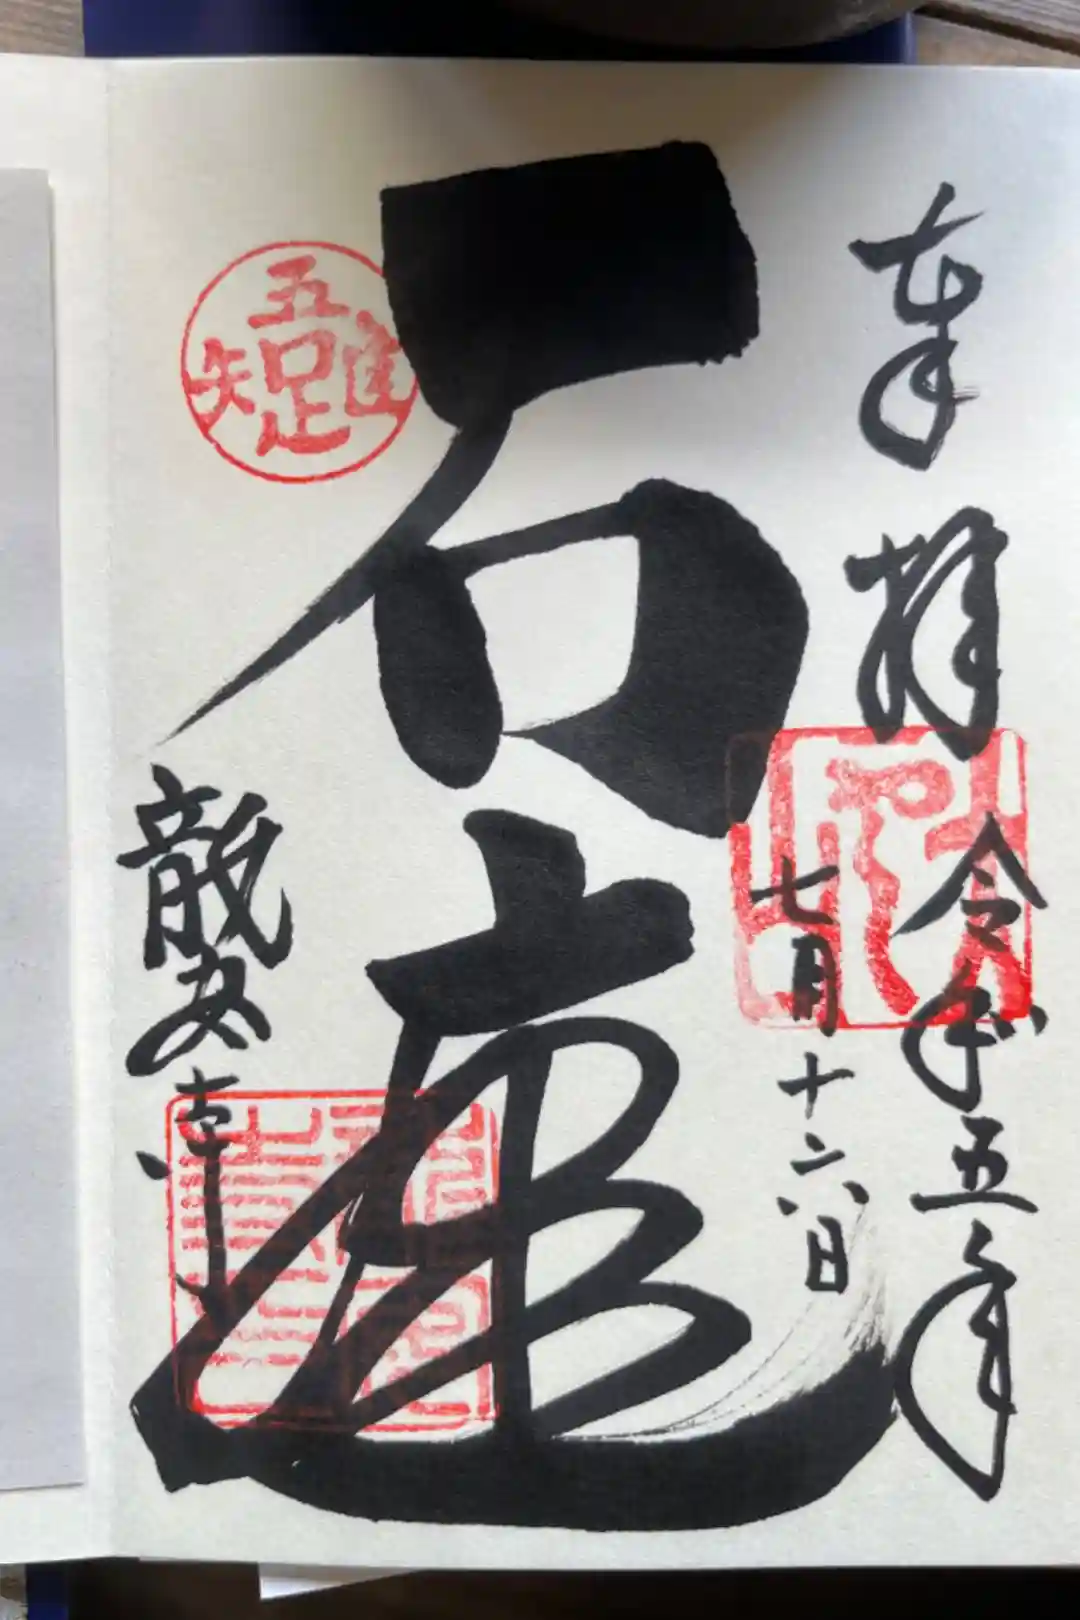 奉拝
令和五年
七月十六日
石庭
吾唯足知
龍安寺